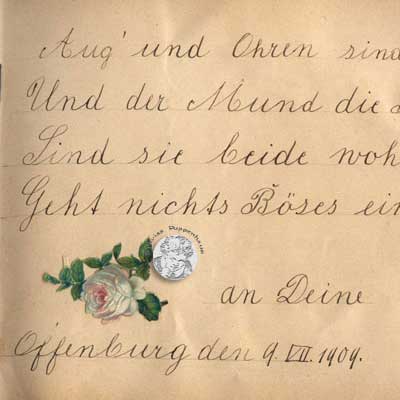 Aug' und Ohren sind
Und der Mund die
Sind sie beide woh
Geht nichts Böses ein
Puppenhaus
an Deine
Offenburg den 9. VII. 1909.